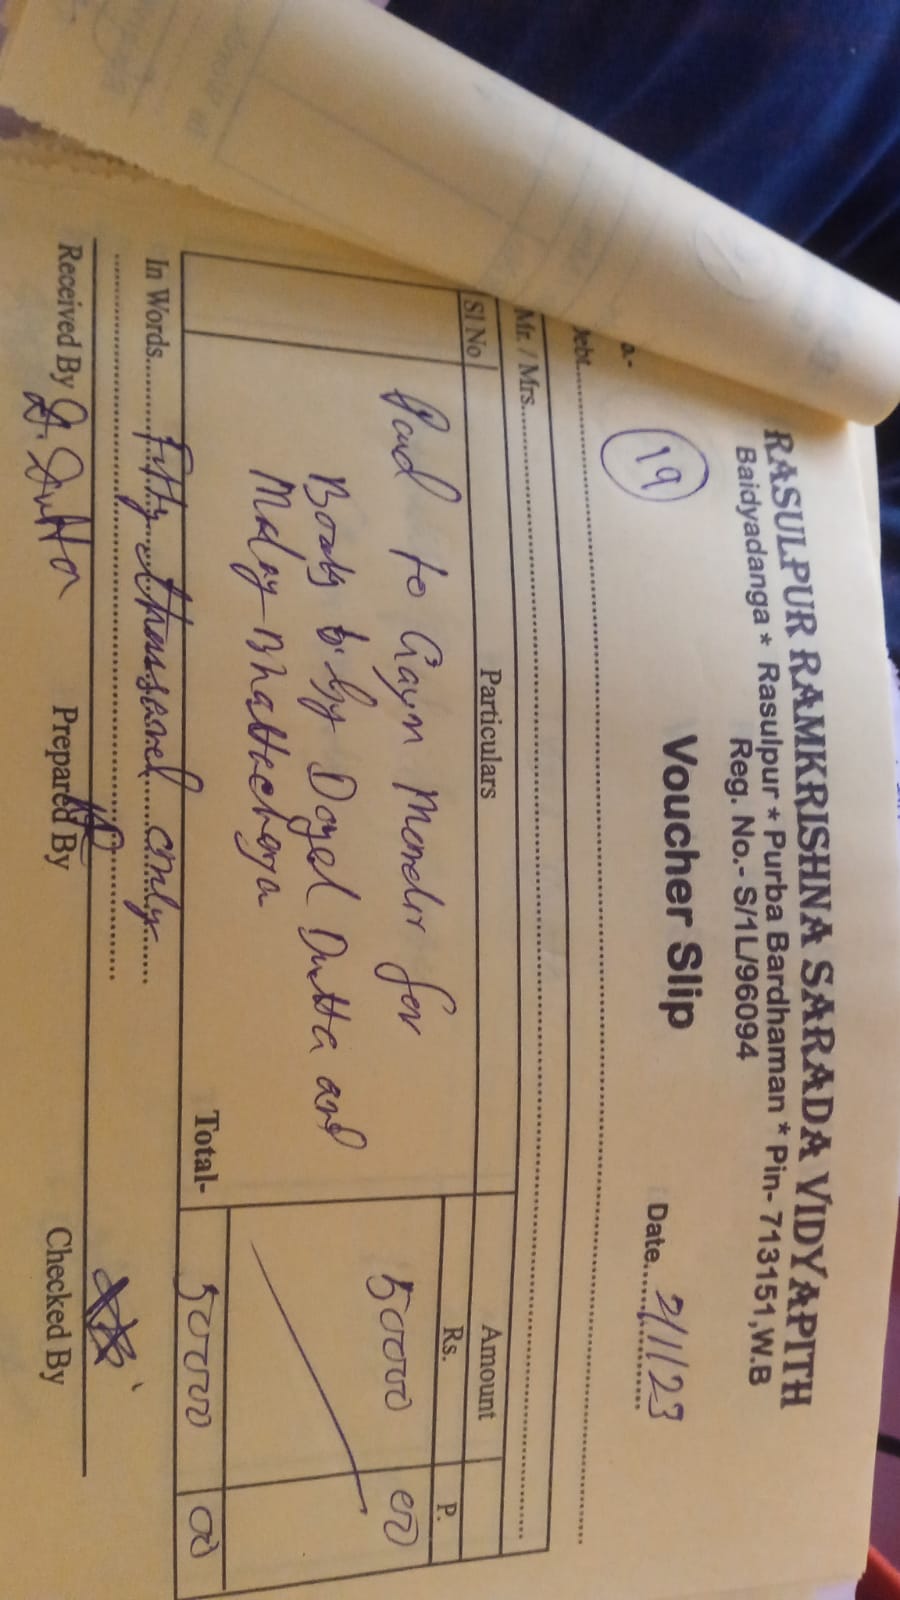 RASULPUR RAMKRISHNA SARADA VIDYAPITH
Baidyadanga * Rasulpur * Purba Bardhaman * Pin- 713151,W.B
Reg. No.- S/1L/96094
19
Voucher Slip
Date 2/1/23
Mr. / Mrs.
Sl No
Particulars
Amount
Rs.
P.
Paid to Gayn Mondir for
50000 00
Books b. by Doyel Dutta and
Malay Bhattacharya
Total-
50000 00
In Words Fifty thousand only
Received By D. Dutta
Prepared By
Checked By